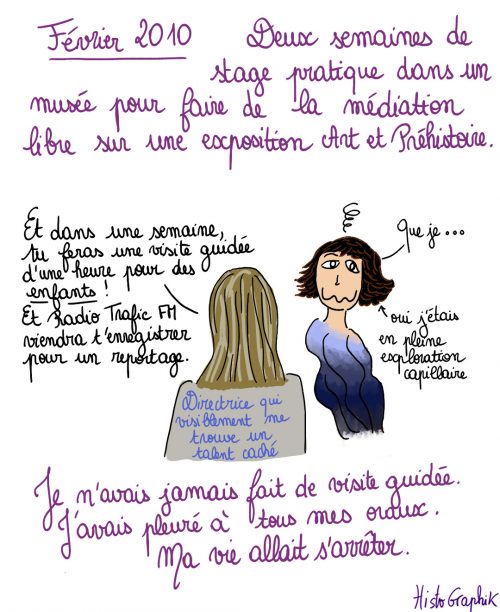 Février 2010 Deux semaines de
stage pratique dans un
musée pour faire de la médiation
libre sur une exposition Art et Préhistoire.
Et dans une semaine,
tu feras une visite guidée
d'une heure pour des
enfants !
Et Radio Trafic FM
viendra t'enregistrer
pour un reportage.
Que je ...
oui j'étais
en pleine
exploration
capillaire
Directrice qui
visiblement me
trouve un
talent caché
Je n'avais jamais fait de visite guidée.
J'avais pleuré à tous mes oraux.
Ma vie allait s'arrêter.
Histo Graphik